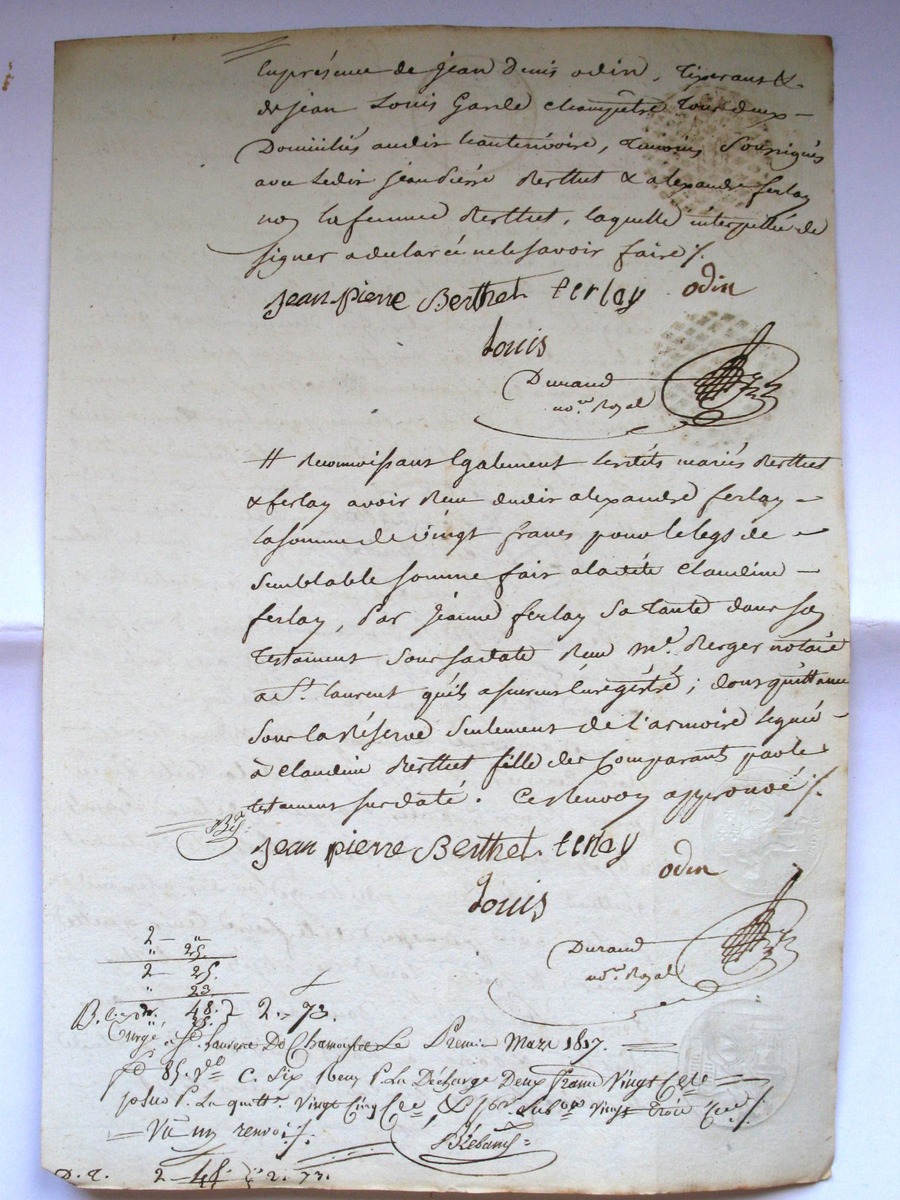 En présence de jean Denis odin, Tixerant &
de jean Louis Garde champêtre Tous deux
Domiciliés audit hauterivoire, Temoins Soussignés
avec Ledit jean pierre Berthet & alexandre ferlay
non La femme Berthet, laquelle interpellée de
signer a declaré ne le savoir faire ./.
jean pierre Berthet ferlay odin
Louis
Durand
no.re Royal
# Reconnoissant Egalement lesdits mariés Berthet
& ferlay avoir Reçu dudit alexandre ferlay
la somme de vingt francs pour le legs de
semblable somme fait a ladite Claudine
ferlay, Par jeanne ferlay sa Tante dans son
Testament sous sa date Reçu m.e Berger notaire
a St. laurent qu'ils assurent Enregistré ; dont quittance
sous la Réserve seulement de l'armoire legué
à claudine Berthet fille des Comparants par le
testament susdaté. Ce Renvoy approuvé ./.
jean pierre Berthet ferlay odin
Louis
Durand
no.re Royal
2 — "
" 25.
2 — 25.
" 23.
48. 2. 73.
Enrgé a St. Laurent De Chamousset Le Premier Mars 1817.
f° 85. v° C. Six Reçu P. La Décharge Deux Francs Vingt
P. La quitt.e Vingt Cinq & Vingt Trois ./.
Vu un renvoi ./.
2 48 2. 73.